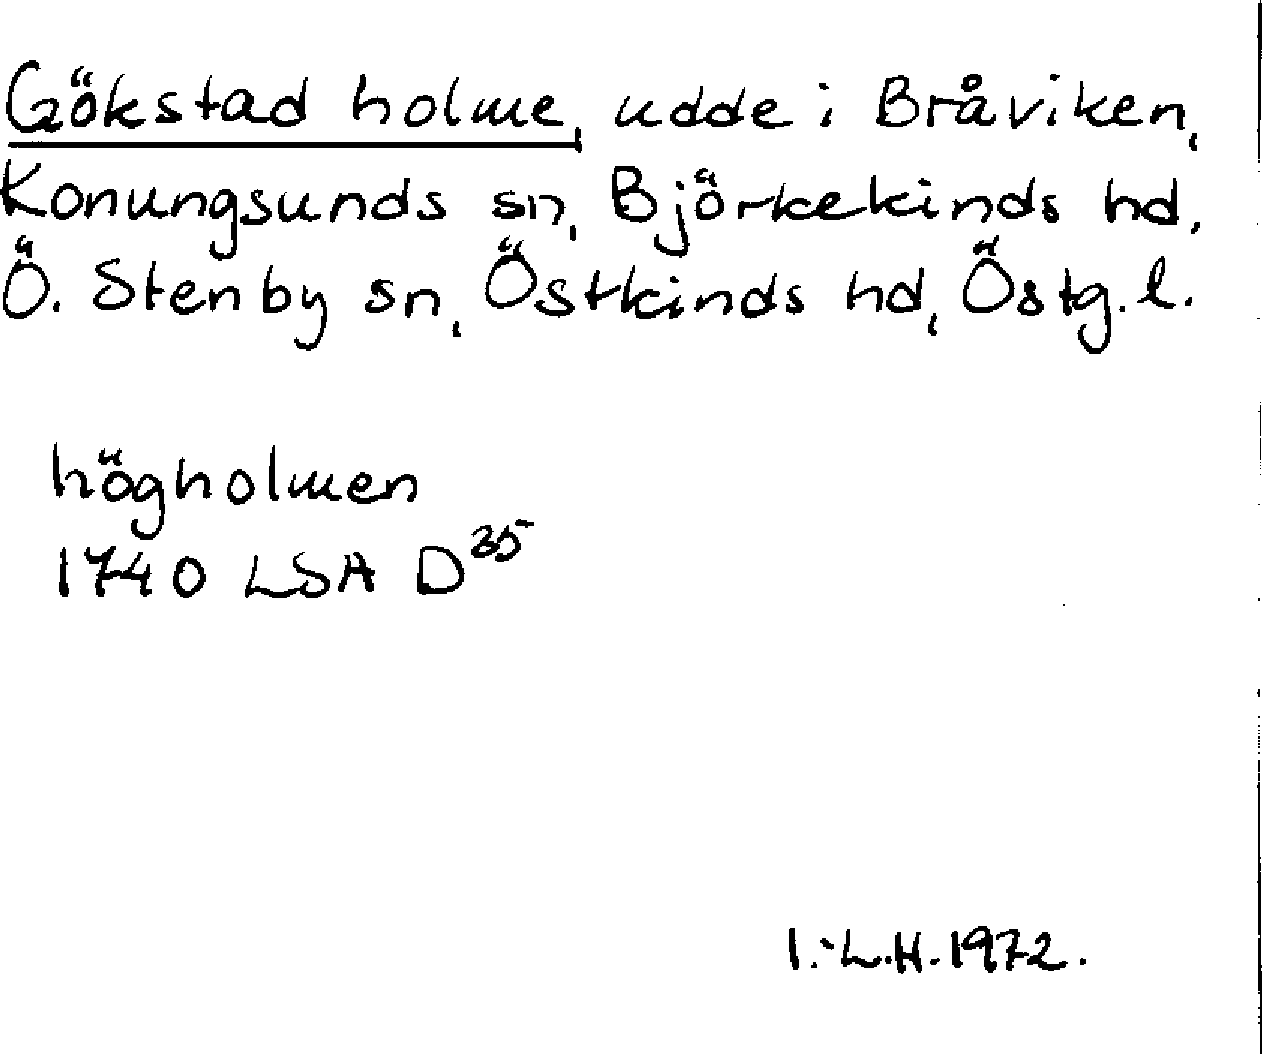 Gökstad holme, udde i Bråviken,
Konungsunds sn, Björkekinds hd,
Ö. Stenby sn, Östkinds hd, Östg. l.
högholmen
1740 LSA D³⁵
I.-L.H. 1972.